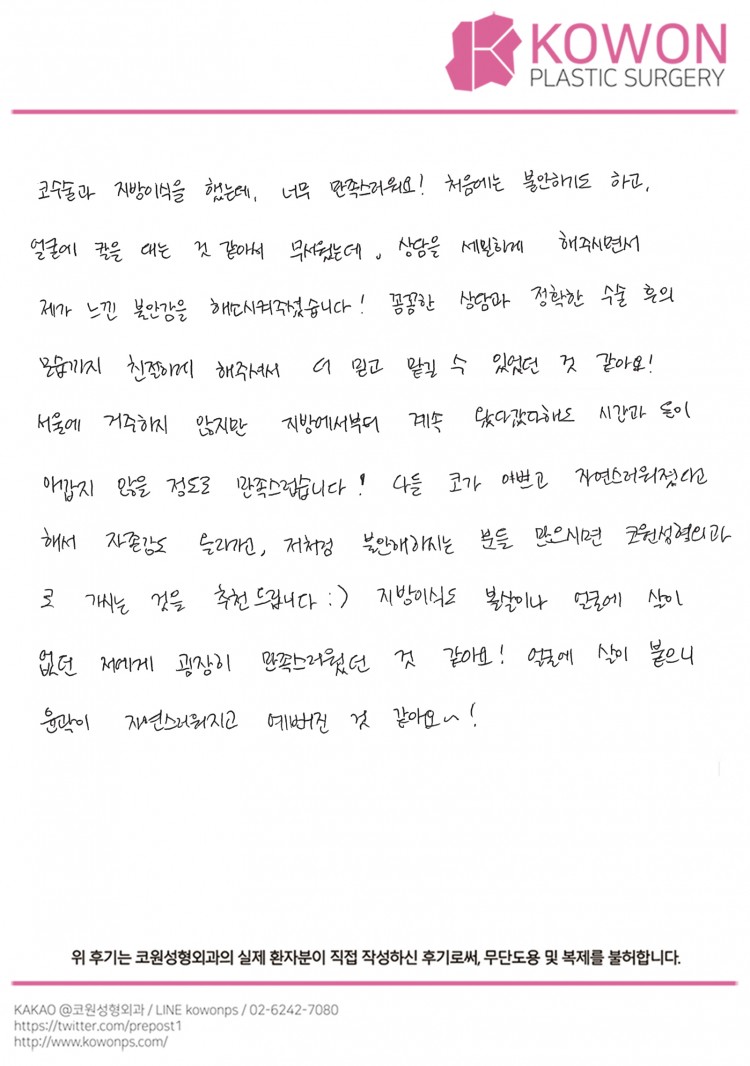 KOWON
PLASTIC SURGERY
코수술과 지방이식을 했는데, 너무 만족스러워요! 처음에는 불안하기도 하고,
얼굴에 칼을 대는 것 같아서 무서웠는데, 상담을 세밀하게 해주시면서
제가 느낀 불안감을 해소시켜주셨습니다! 꼼꼼한 상담과 정확한 수술 후의
모습까지 친절하게 해주셔서 더 믿고 맡길 수 있었던 것 같아요!
서울에 거주하지 않지만 지방에서부터 계속 왔다갔다해도 시간과 돈이
아깝지 않을 정도로 만족스럽습니다! 다들 코가 이쁘고 자연스러워졌다고
해서 자존감도 올라가고, 저처럼 불안해하시는 분들 많으시면 코원성형외과
로 가시는 것을 추천드립니다 :) 지방이식도 볼살이나 얼굴에 살이
없던 저에게 굉장히 만족스러웠던 것 같아요! 얼굴에 살이 붙으니
윤곽이 자연스러워지고 예뻐진 것 같아요~!
위 후기는 코원성형외과의 실제 환자분이 직접 작성하신 후기로써, 무단도용 및 복제를 불허합니다.
KAKAO @코원성형외과 / LINE kowonps / 02-6242-7080
https://twitter.com/prepost1
http://www.kowonps.com/